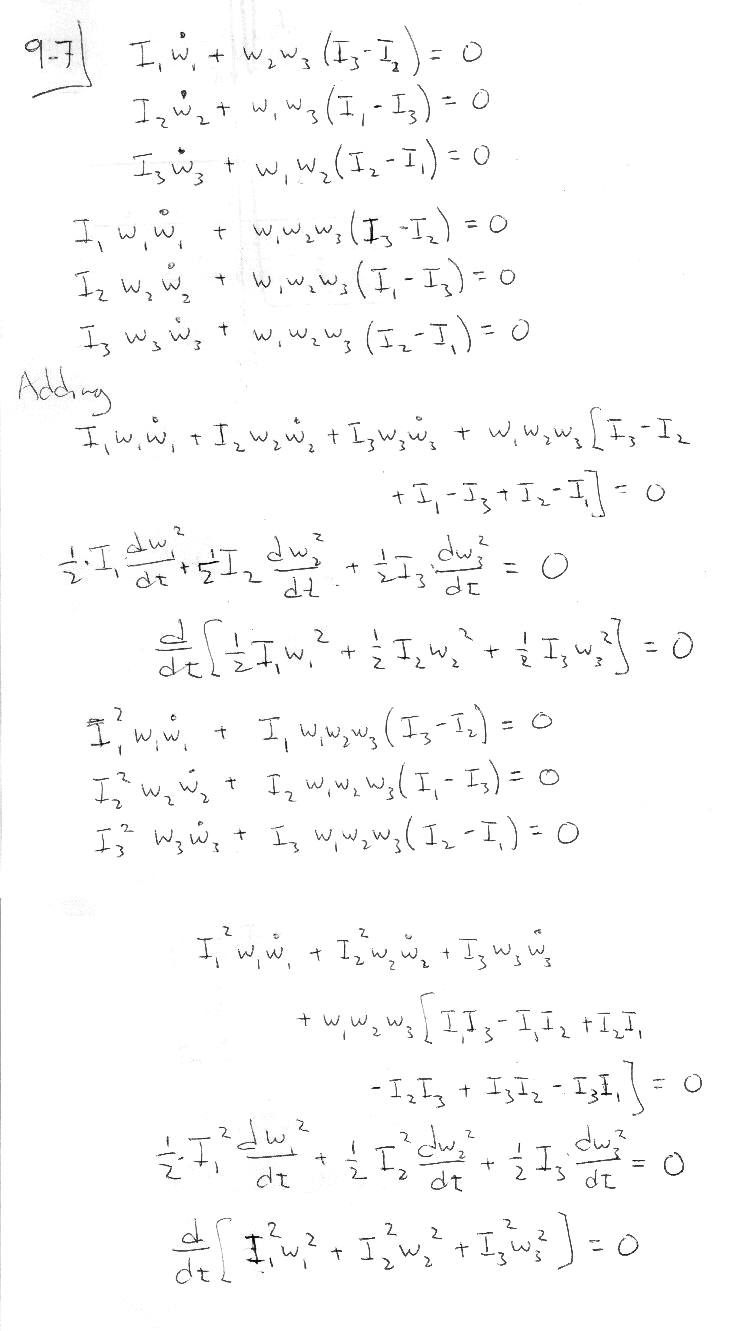 9-7) I₁ẇ₁ + w₂w₃(I₃-I₂) = 0
I₂ẇ₂ + w₁w₃(I₁-I₃) = 0
I₃ẇ₃ + w₁w₂(I₂-I₁) = 0
I₁w₁ẇ₁ + w₁w₂w₃(I₃-I₂) = 0
I₂w₂ẇ₂ + w₁w₂w₃(I₁-I₃) = 0
I₃w₃ẇ₃ + w₁w₂w₃(I₂-I₁) = 0
Adding
I₁w₁ẇ₁ + I₂w₂ẇ₂ + I₃w₃ẇ₃ + w₁w₂w₃[I₃-I₂
+ I₁-I₃+I₂-I₁] = 0
½·I₁ dw₁²/dt + ½I₂ dw₂²/dt + ½I₃ dw₃²/dt = 0
d/dt[½I₁w₁² + ½I₂w₂² + ½I₃w₃²] = 0
I₁²w₁ẇ₁ + I₁w₁w₂w₃(I₃-I₂) = 0
I₂²w₂ẇ₂ + I₂w₁w₂w₃(I₁-I₃) = 0
I₃²w₃ẇ₃ + I₃w₁w₂w₃(I₂-I₁) = 0
I₁²w₁ẇ₁ + I₂²w₂ẇ₂ + I₃w₃ẇ₃
+ w₁w₂w₃[I₁I₃-I₁I₂+I₂I₁
-I₂I₃ + I₃I₂ - I₃I₁] = 0
½·I₁² dw₁²/dt + ½I₂² dw₂²/dt + ½I₃ dw₃²/dt = 0
d/dt[I₁²w₁² + I₂²w₂² + I₃²w₃²] = 0